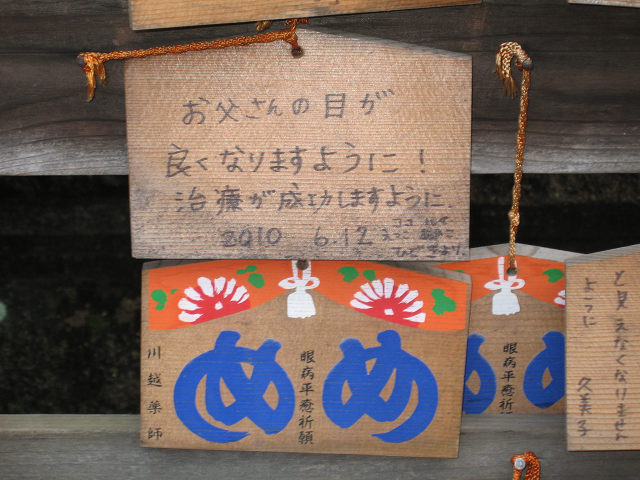 お父さんの目が
良くなりますように!
治療が成功しますように.
2010 6.12
ひできより.
川越薬師
め
眼病平癒祈願
め
眼病平癒祈
と見えなくなりません
ように
久美子